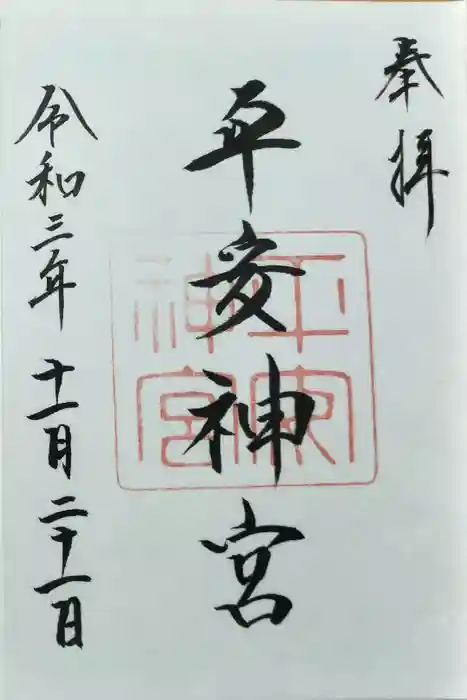 奉拝
平安神宮
平安神宮
令和三年 十一月二十一日